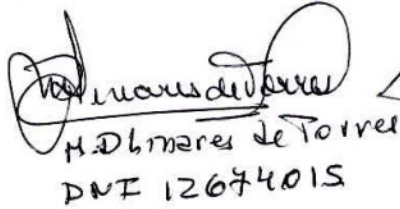 Linares de Torres
M.D Linares de Torres
DNI 12674015